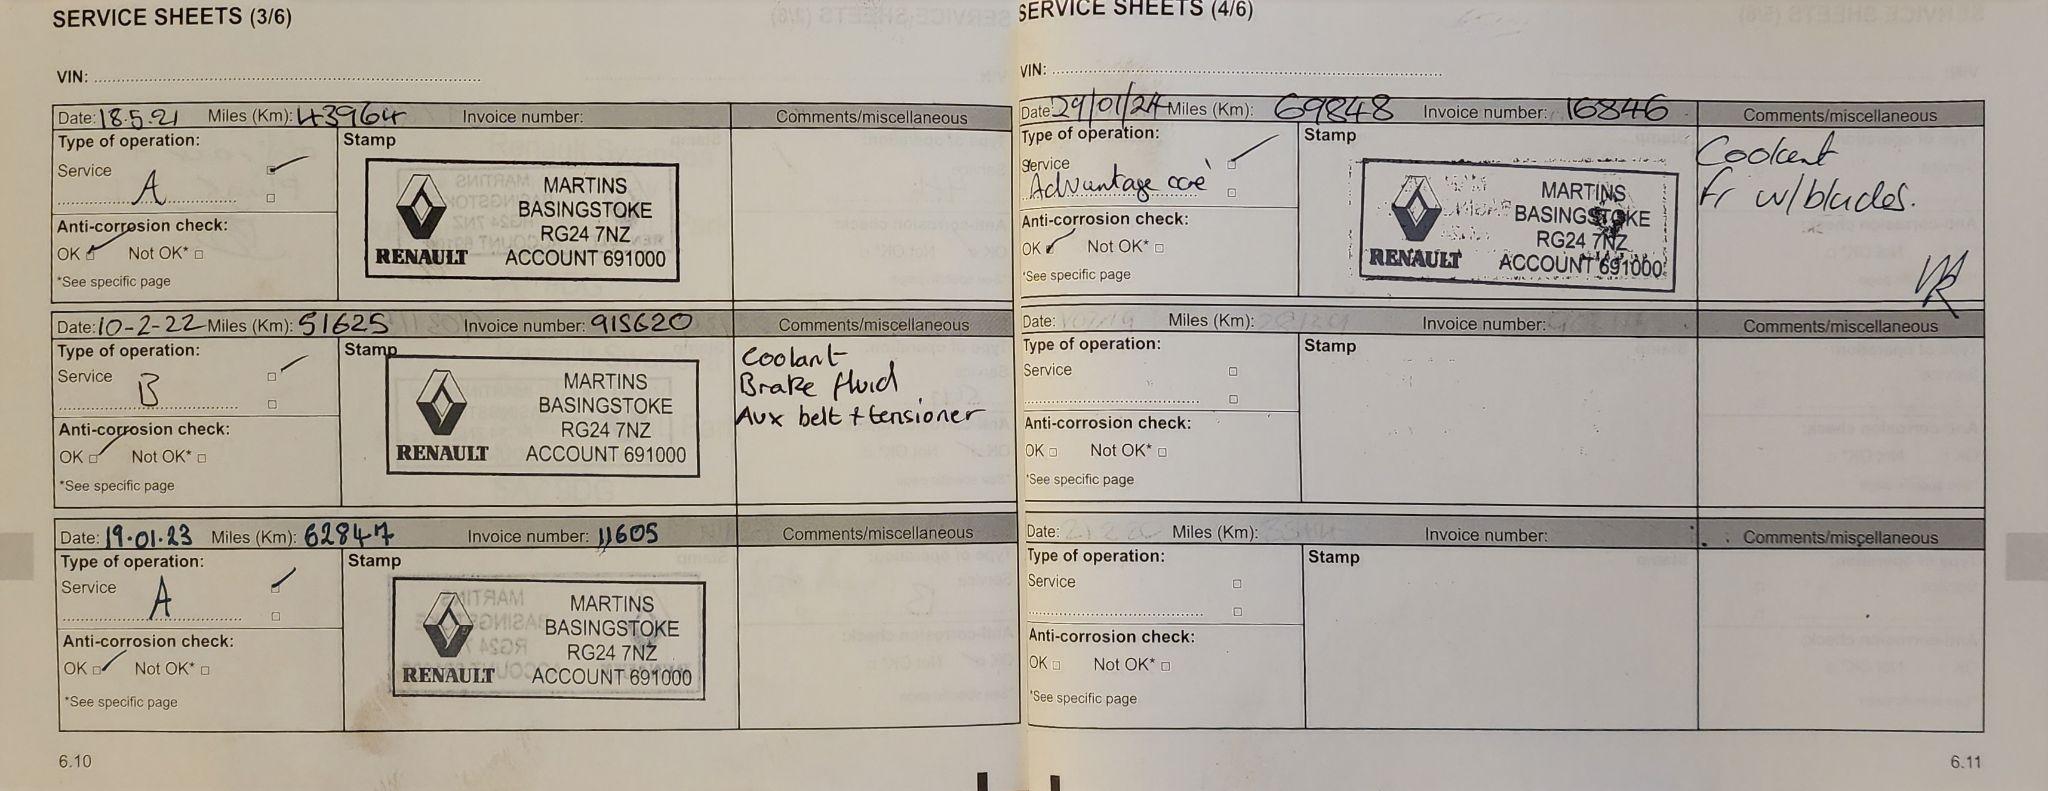 SERVICE SHEETS (3/6)
VIN:
Date: 18.5.21 Miles (Km): 43964 Invoice number: Comments/miscellaneous
Type of operation: Stamp
Service
A
Anti-corrosion check:
OK Not OK*
*See specific page
MARTINS
BASINGSTOKE
RG24 7NZ
RENAULT ACCOUNT 691000
Date: 10-2-22 Miles (Km): 51625 Invoice number: 915620 Comments/miscellaneous
Type of operation: Stamp
Service
B
Anti-corrosion check:
OK Not OK*
*See specific page
MARTINS
BASINGSTOKE
RG24 7NZ
RENAULT ACCOUNT 691000
Coolant
Brake fluid
Aux belt + tensioner
Date: 19.01.23 Miles (Km): 62847 Invoice number: 11605 Comments/miscellaneous
Type of operation: Stamp
Service
A
Anti-corrosion check:
OK Not OK*
*See specific page
MARTINS
BASINGSTOKE
RG24 7NZ
RENAULT ACCOUNT 691000
6.10
SERVICE SHEETS (4/6)
VIN:
Date: 29/01/24 Miles (Km): 69848 Invoice number: 16846 Comments/miscellaneous
Type of operation: Stamp
Service
Advantage
Anti-corrosion check:
OK Not OK*
*See specific page
MARTINS
BASINGSTOKE
RG24 7NZ
RENAULT ACCOUNT 691000
Coolant
Fr w/blades.
Date: Miles (Km): Invoice number: Comments/miscellaneous
Type of operation: Stamp
Service
Anti-corrosion check:
OK Not OK*
*See specific page
Date: Miles (Km): Invoice number: Comments/miscellaneous
Type of operation: Stamp
Service
Anti-corrosion check:
OK Not OK*
*See specific page
6.11